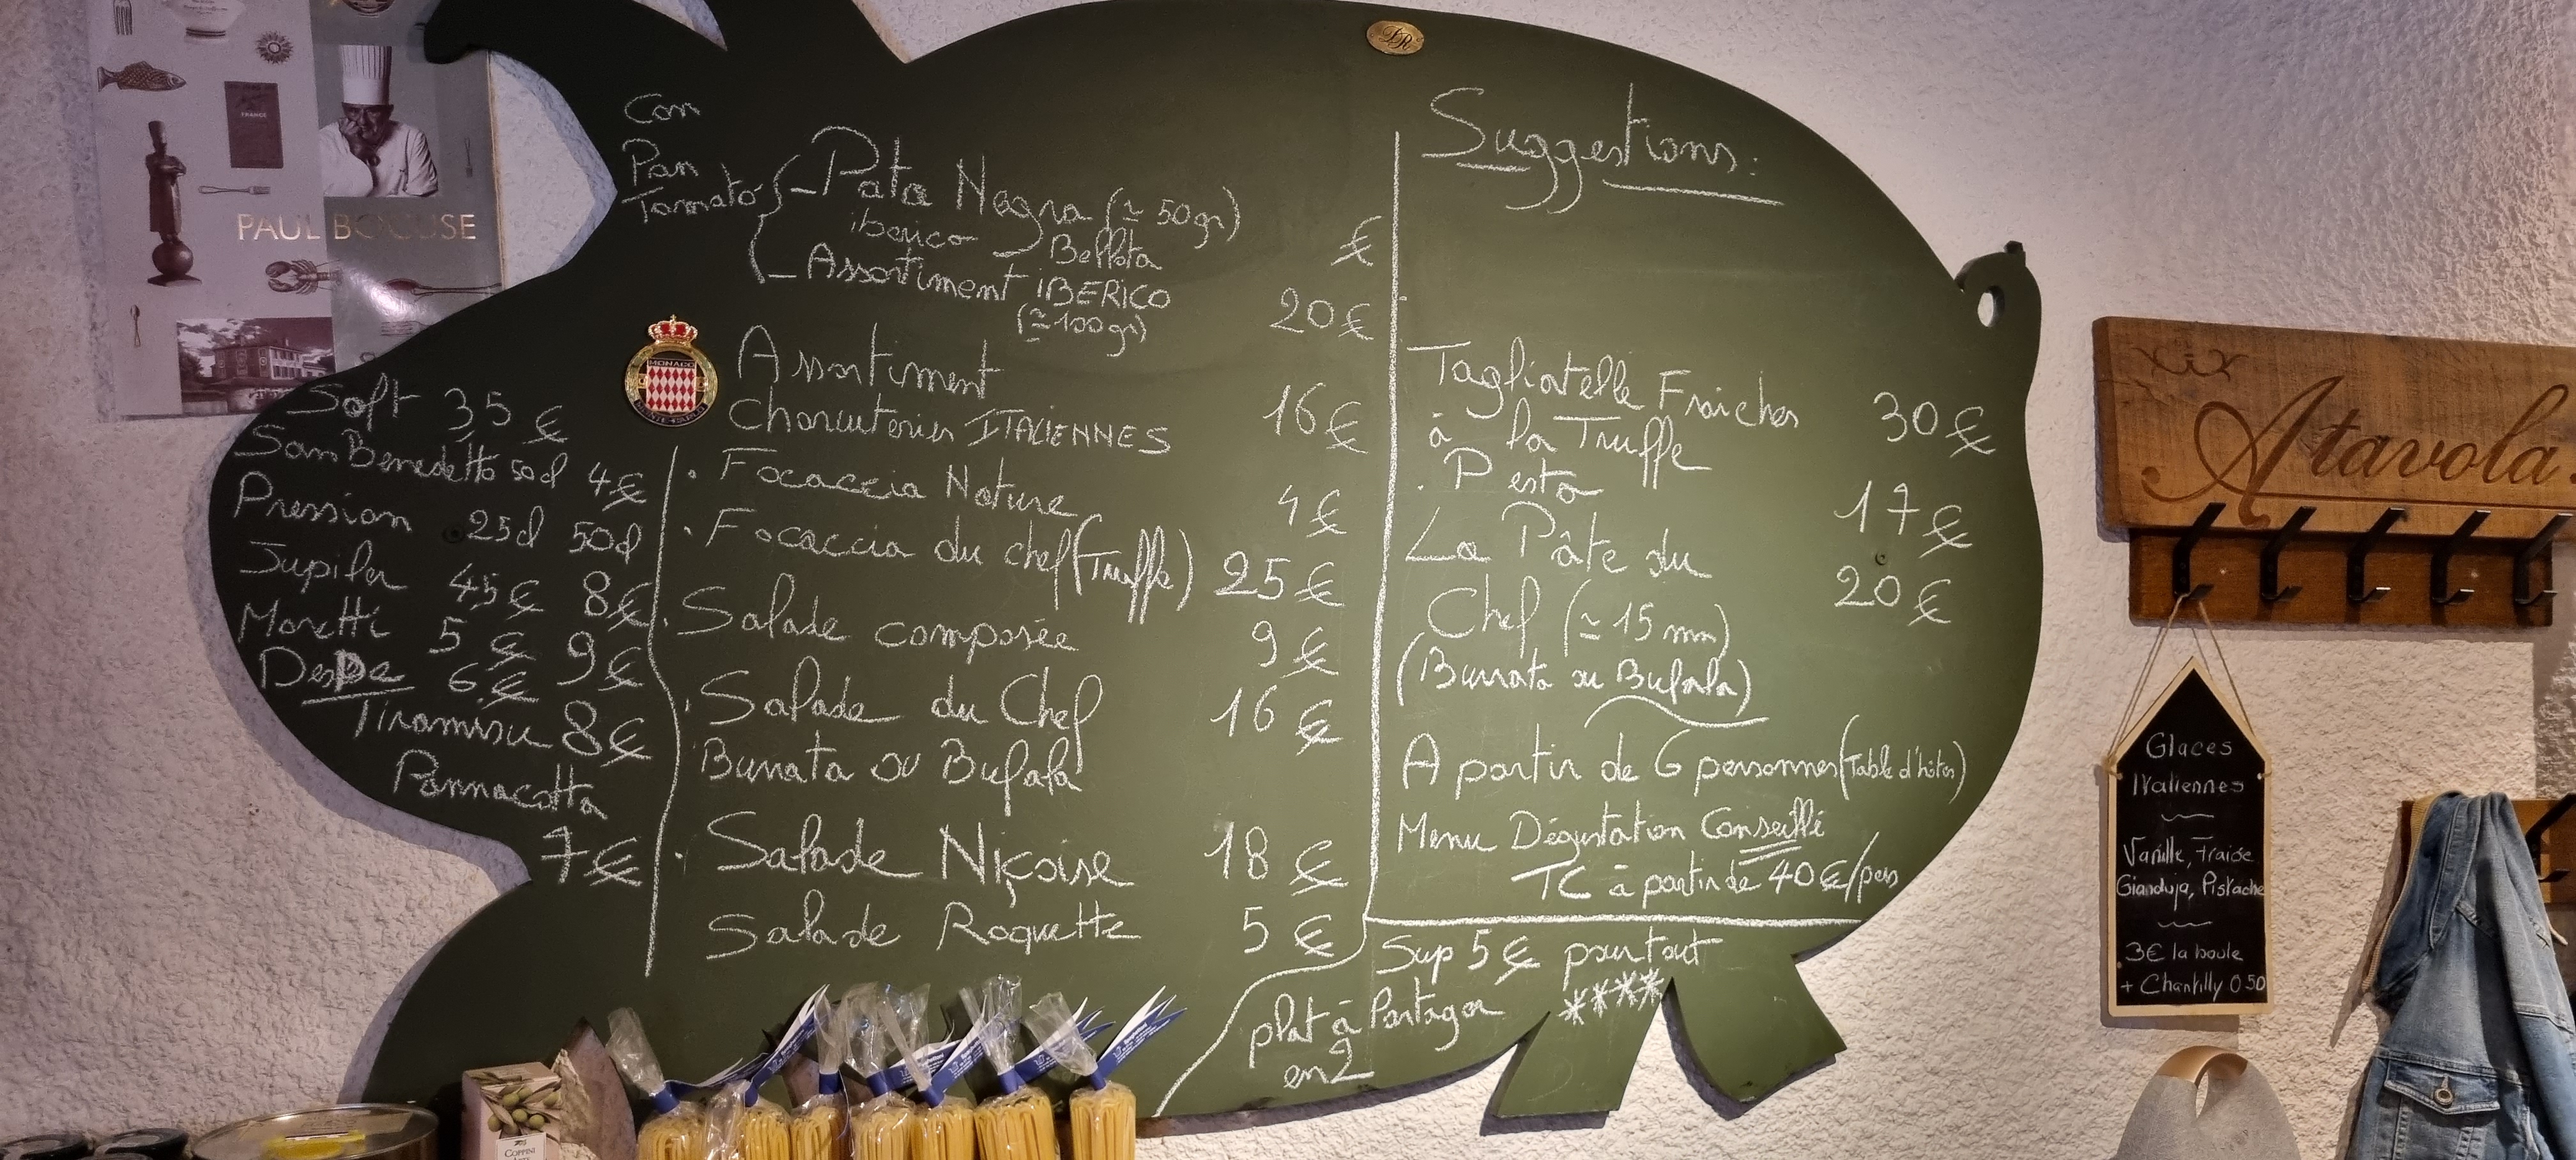 PAUL BOCUSE
FRANCE
Con
Pan
Tomato
- Pata Negra (≃ 50gr)
iberico Bellota €
- Assortiment iBERICO
(≃ 100gr) 20€
MONACO
Assortiment
Charcuteries ITALIENNES 16€
. Focaccia Nature 4€
. Focaccia du chef (Truffe) 25€
. Salade composée 9€
. Salade du Chef 16€
Burrata ou Bufala
. Salade Niçoise 18€
Salade Roquette 5€
Soft 3,5€
San Benedetto 50cl 4€
Pression 25cl 50cl
Jupiler 4,5€ 8€
Moretti 5€ 9€
6€
Tiramisu 8€
Pannacotta
7€
Suggestions:
Tagliatelle Fraiches 30€
à la Truffe
. Pesto 17€
La Pâte du 20€
Chef (≃ 15 mn)
(Burrata ou Bufala)
A partir de 6 personnes (Table d'hôtes)
Menu Dégustation Conseillé
TC à partir de 40€/pers
Sup 5€ pour tout
plat à Partager ****
en 2
Atavola
Glaces
Italiennes
Vanille, Fraise
Gianduja, Pistache
3€ la boule
+ Chantilly 0.50